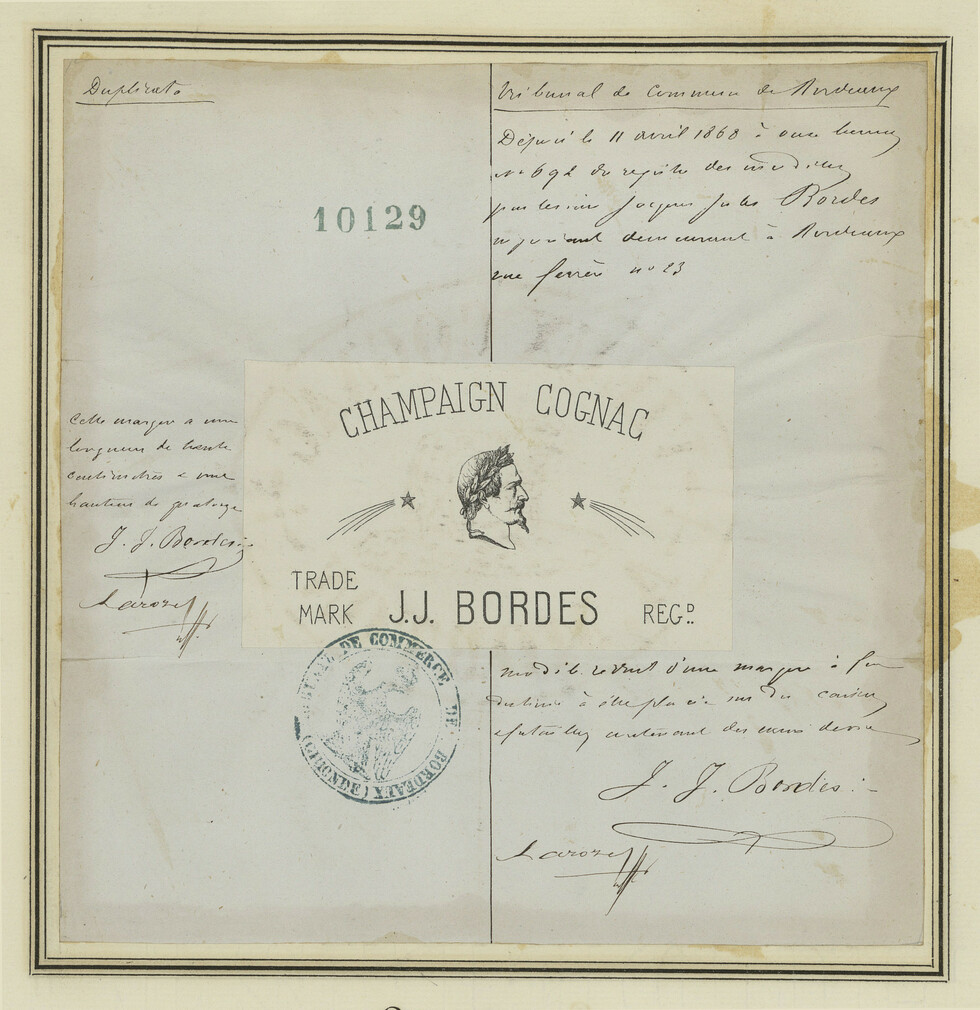 Duplicata
Tribunal de Commerce de Bordeaux
Déposé le 11 avril 1868 à onze heures
No 692 du registre des modèles
par le sieur Jacques Jules Bordes
négociant demeurant à Bordeaux
rue ferrère no 23
10129
CHAMPAIGN COGNAC
TRADE
MARK J.J. BORDES REGD.
Cette marque a une
longueur de trente
centimètres & une
hauteur de quatorze
J. J. Bordes
Laroze
TRIBUNAL DE COMMERCE DE BORDEAUX (GIRONDE)
modèle réduit d'une marque à feu
destinée à être placée sur des caisses
& futailles contenant des eaux de vie
J. J. Bordes
Laroze